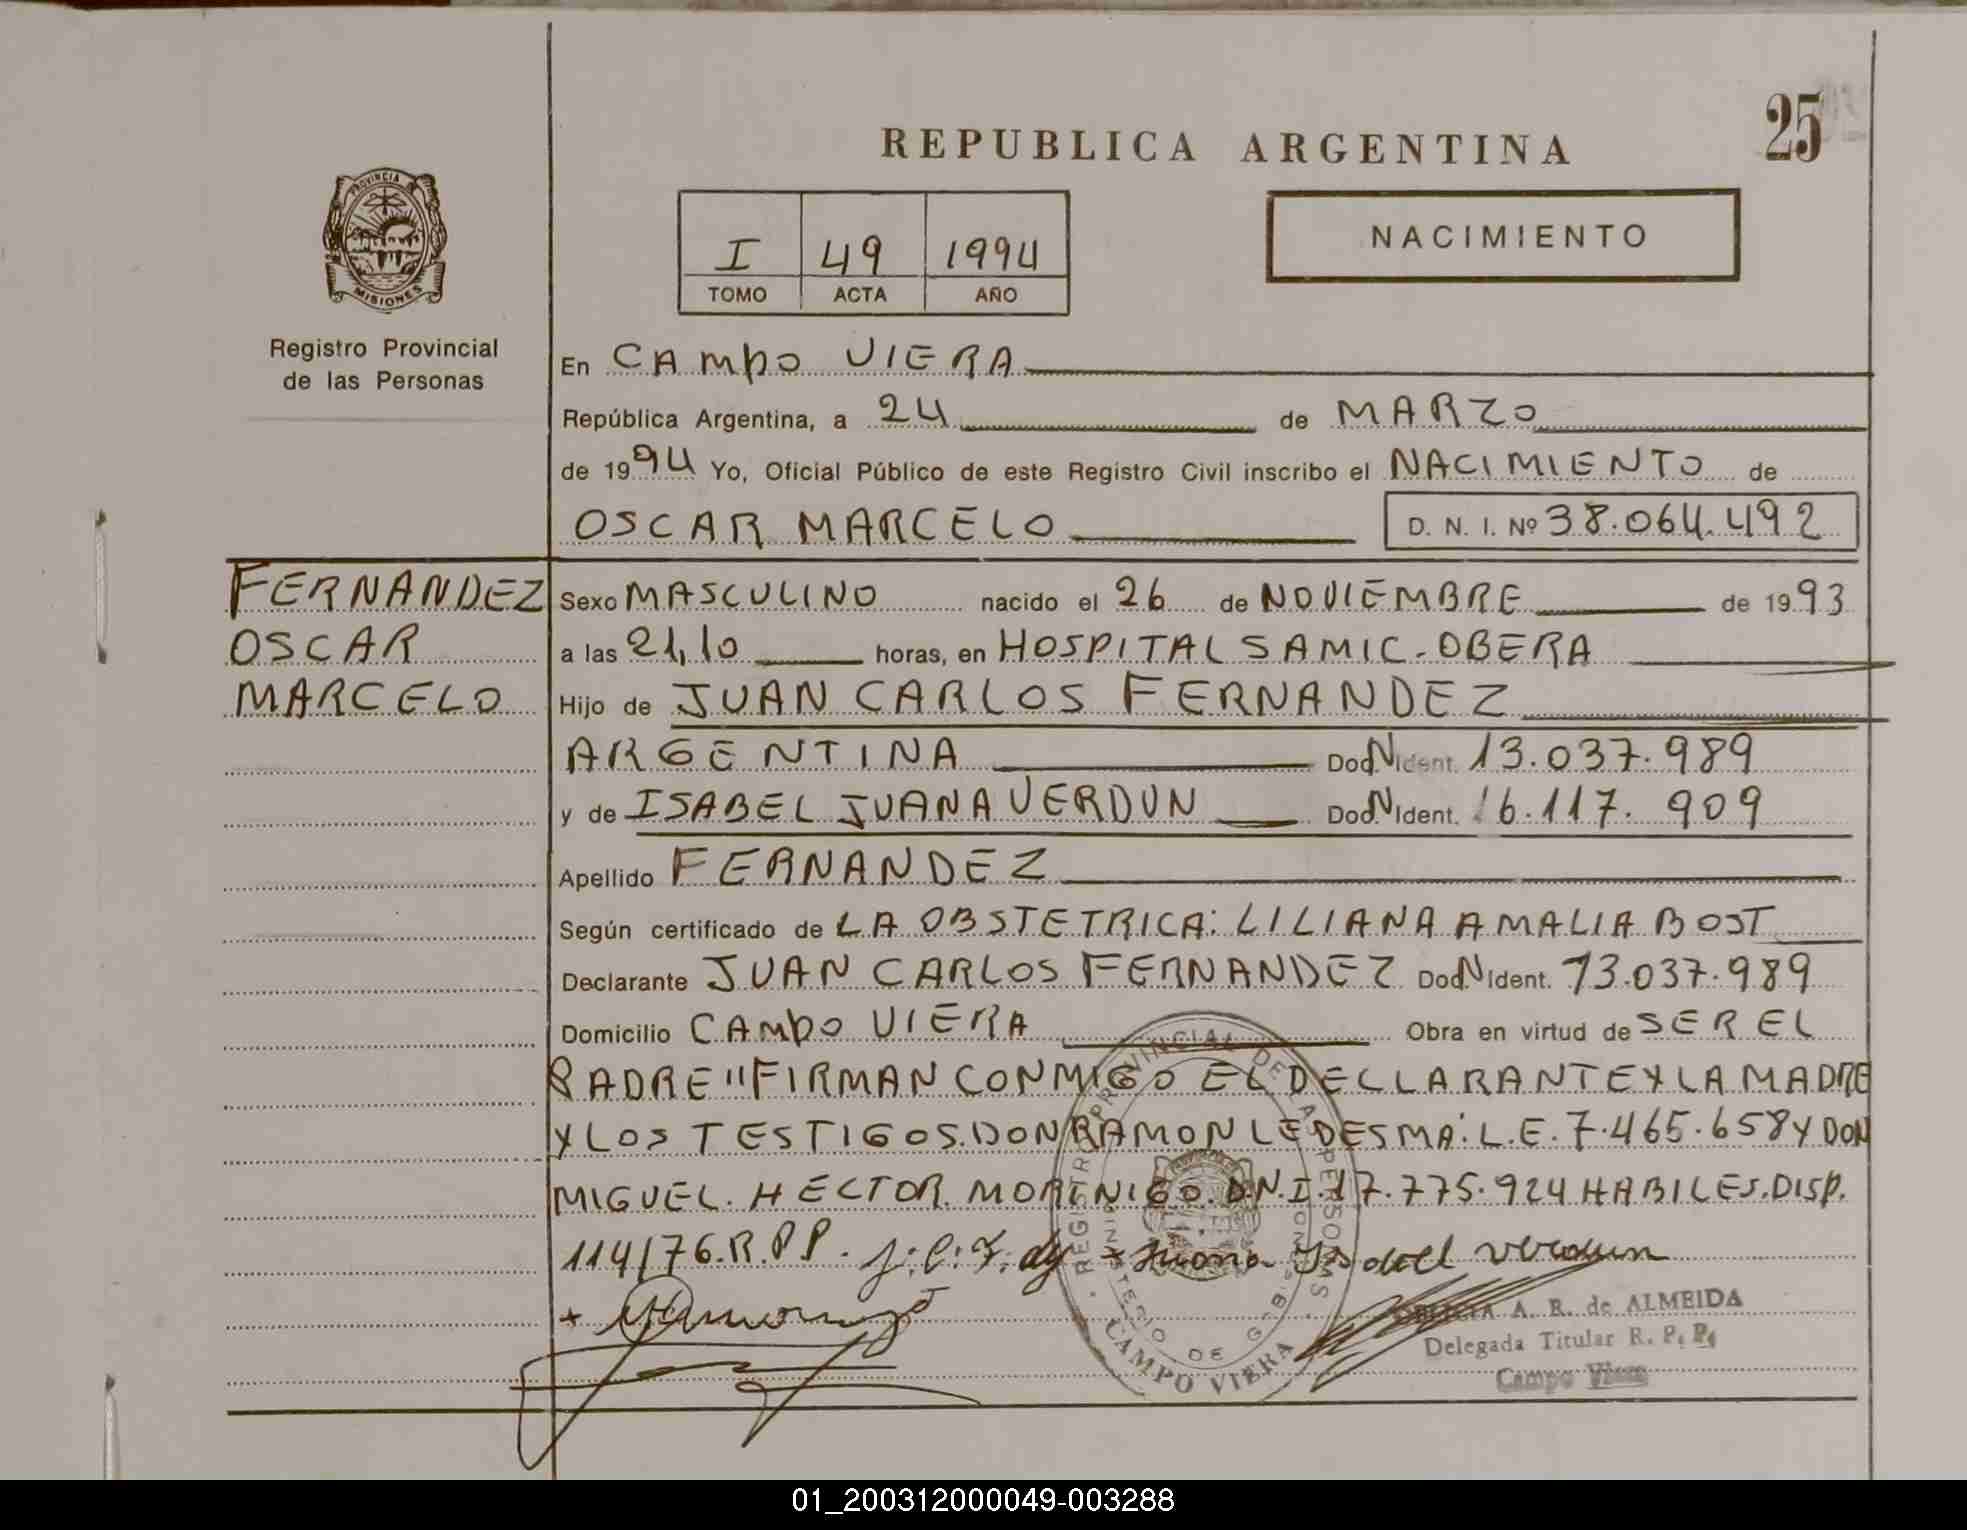 25
REPUBLICA ARGENTINA
PROVINCIA DE
MISIONES
Registro Provincial
de las Personas
I 49 1994
TOMO ACTA AÑO
NACIMIENTO
En CAMPO VIERA
República Argentina, a 24 de MARZO
de 1994 Yo, Oficial Público de este Registro Civil inscribo el NACIMIENTO de
OSCAR MARCELO D. N. I. Nº 38.064.492
FERNANDEZ
OSCAR
MARCELO
Sexo MASCULINO nacido el 26 de NOVIEMBRE de 1993
a las 21,10 horas, en HOSPITAL SAMIC-OBERA
Hijo de JUAN CARLOS FERNANDEZ
ARGENTINA Doc.N.Ident. 13.037.989
y de ISABEL JUANA VERDUN Doc.N.Ident. 16.117.909
Apellido FERNANDEZ
Según certificado de LA OBSTETRICA: LILIANA AMALIA BOST
Declarante JUAN CARLOS FERNANDEZ Doc.N.Ident. 13.037.989
Domicilio CAMPO VIERA Obra en virtud de SER EL
PADRE "FIRMAN CONMIGO EL DECLARANTE Y LA MADRE
Y LOS TESTIGOS.DON RAMON LEDESMA: L.E. 7.465.658 Y DON
MIGUEL HECTOR MORINIGO.D.N.I.17.775.924 HABILES.DISP.
114/76.R.P.P. J.C.F. Juana Isabel Verdun
REGISTRO PROVINCIAL DE LAS PERSONAS
MINISTERIO DE GOBIERNO
CAMPO VIERA
A. R. de ALMEIDA
Delegada Titular R. P. P.
Campo Viera
01_200312000049-003288